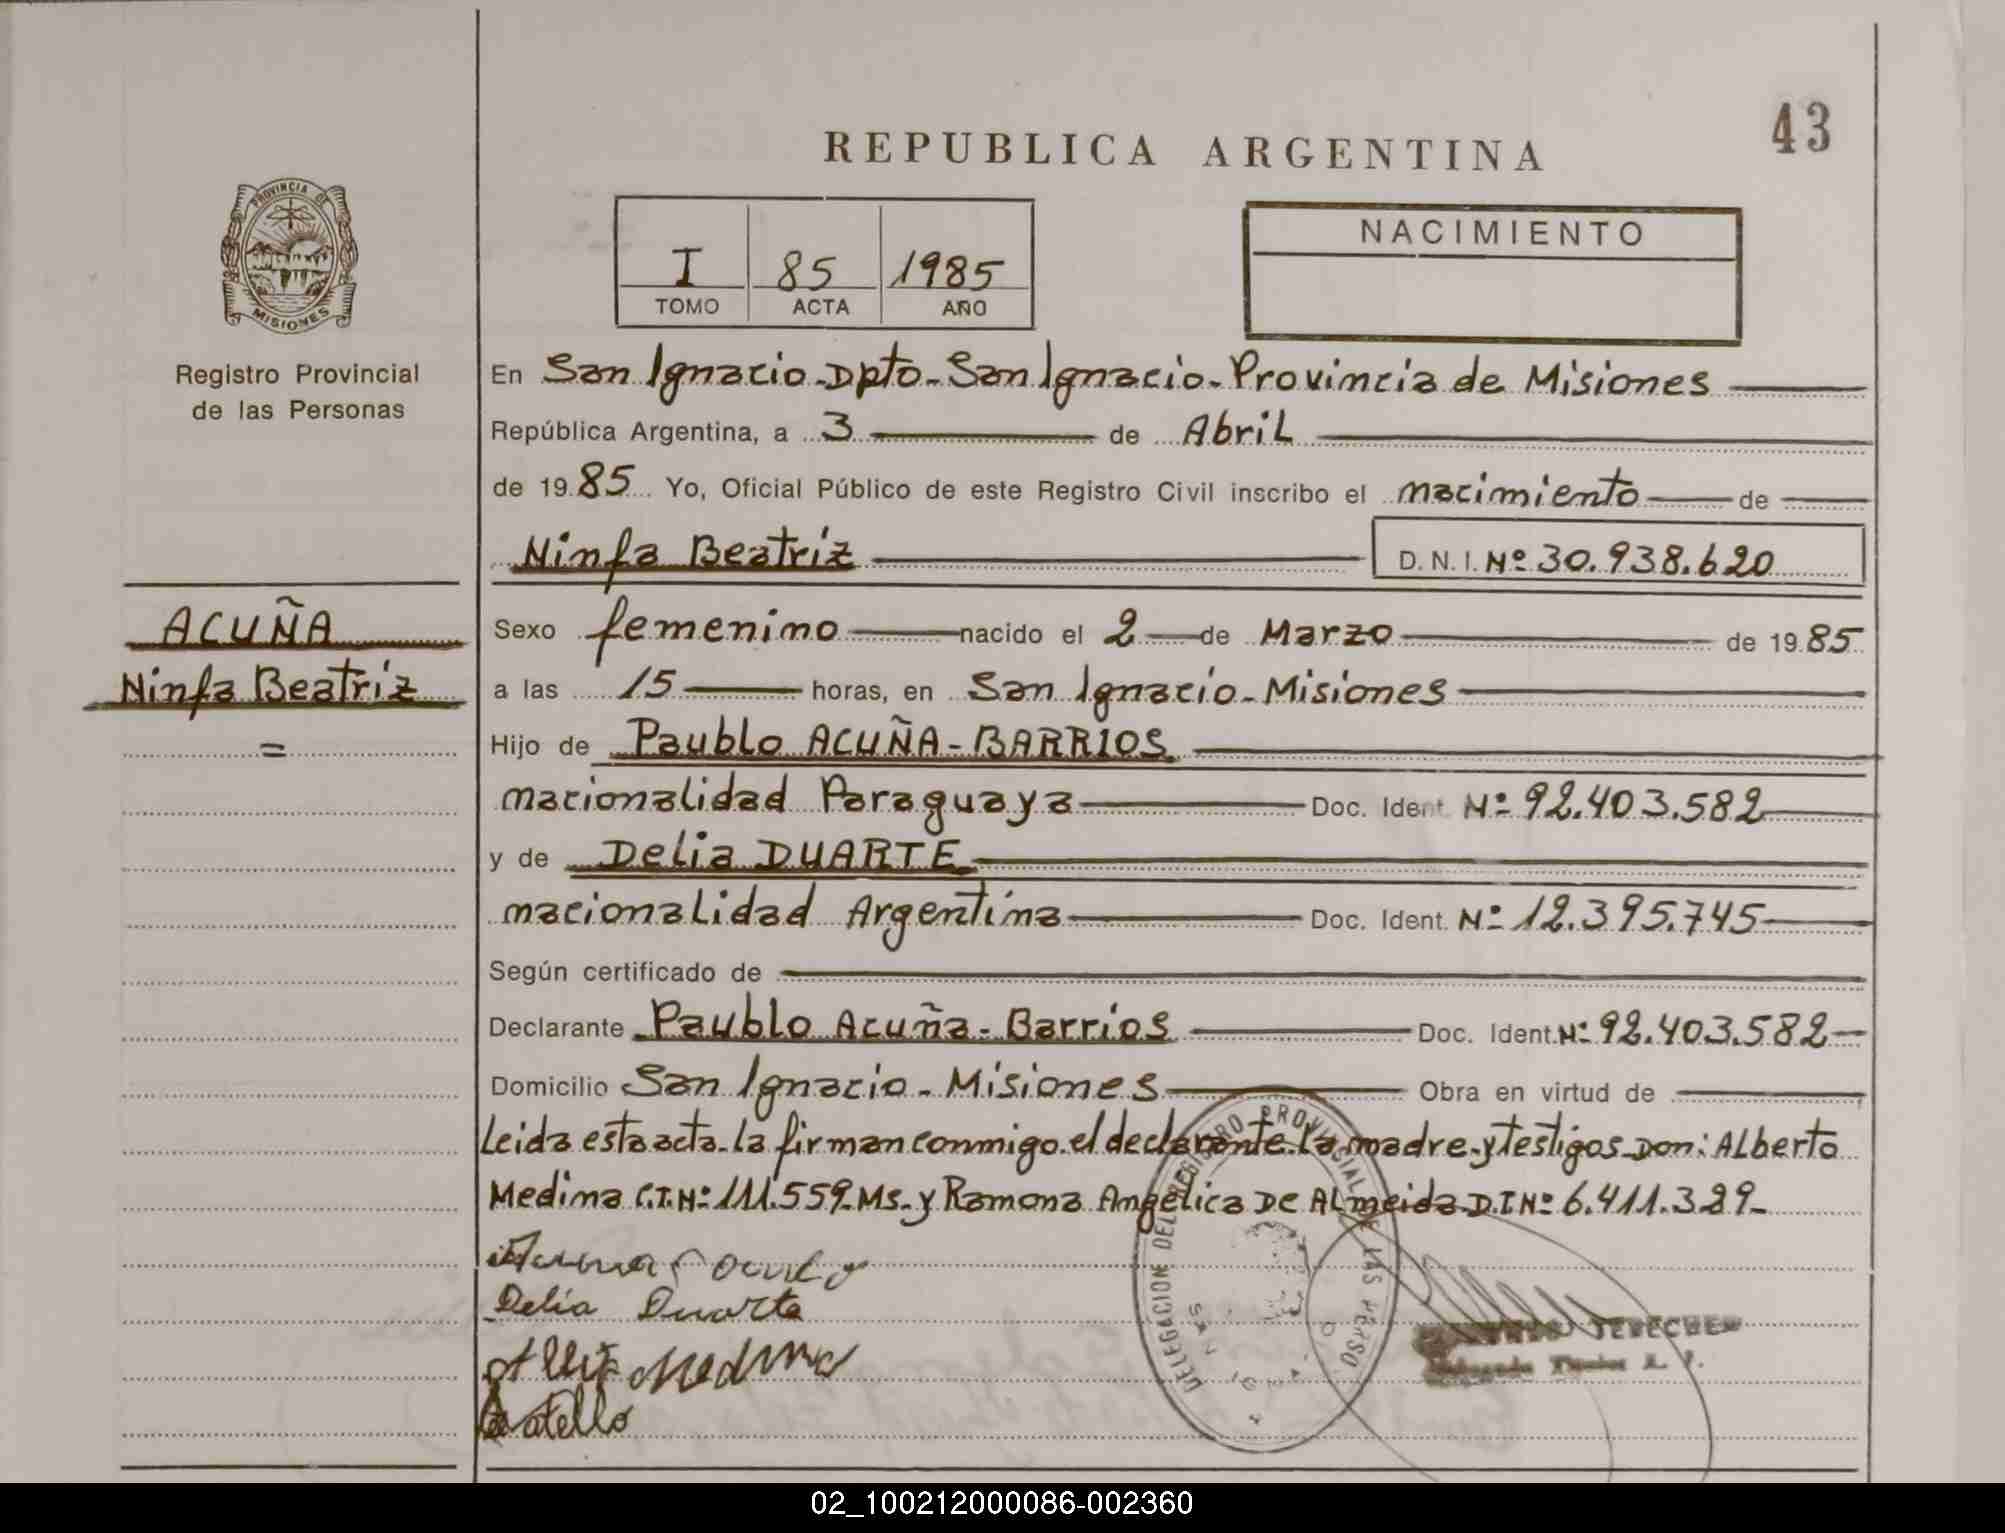 43
REPUBLICA ARGENTINA
PROVINCIA DE
MISIONES
Registro Provincial
de las Personas
I 85 1985
TOMO ACTA AÑO
NACIMIENTO
En San Ignacio-Dpto-San Ignacio-Provincia de Misiones
República Argentina, a 3 de Abril
de 1985 Yo, Oficial Público de este Registro Civil inscribo el nacimiento de
Ninfa Beatriz D.N.I. Nº 30.938.620
ACUÑA
Ninfa Beatriz
=
Sexo femenino nacido el 2 de Marzo de 1985
a las 15 horas, en San Ignacio-Misiones
Hijo de Paublo ACUÑA-BARRIOS
nacionalidad Paraguaya Doc. Ident. Nº 92.403.582
y de Delia DUARTE
nacionalidad Argentina Doc. Ident. Nº 12.395.745
Según certificado de
Declarante Paublo Acuña-Barrios Doc. Ident. Nº 92.403.582
Domicilio San Ignacio-Misiones Obra en virtud de
Leida esta acta-la firman conmigo el declarante-la madre-y testigos-Don: Alberto
Medina C.I.Nº 111.559-Ms-y Ramona Angélica De Almeida D.I Nº 6.411.329-
Delia Duarte
Medina
DELEGACION DEL REGISTRO PROVINCIAL DE LAS PERSO
SAN IGNA
02_100212000086-002360